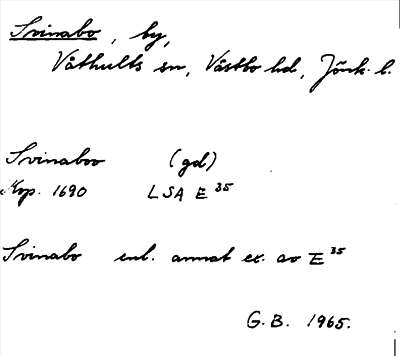 Svinabo, by,
Våthults sn, Västbo hd, Jönk. l.
Svinaboo (gd)
Kop. 1690 LSA E 35
Svinabo enl. annat ex. av E 35
G.B. 1965.